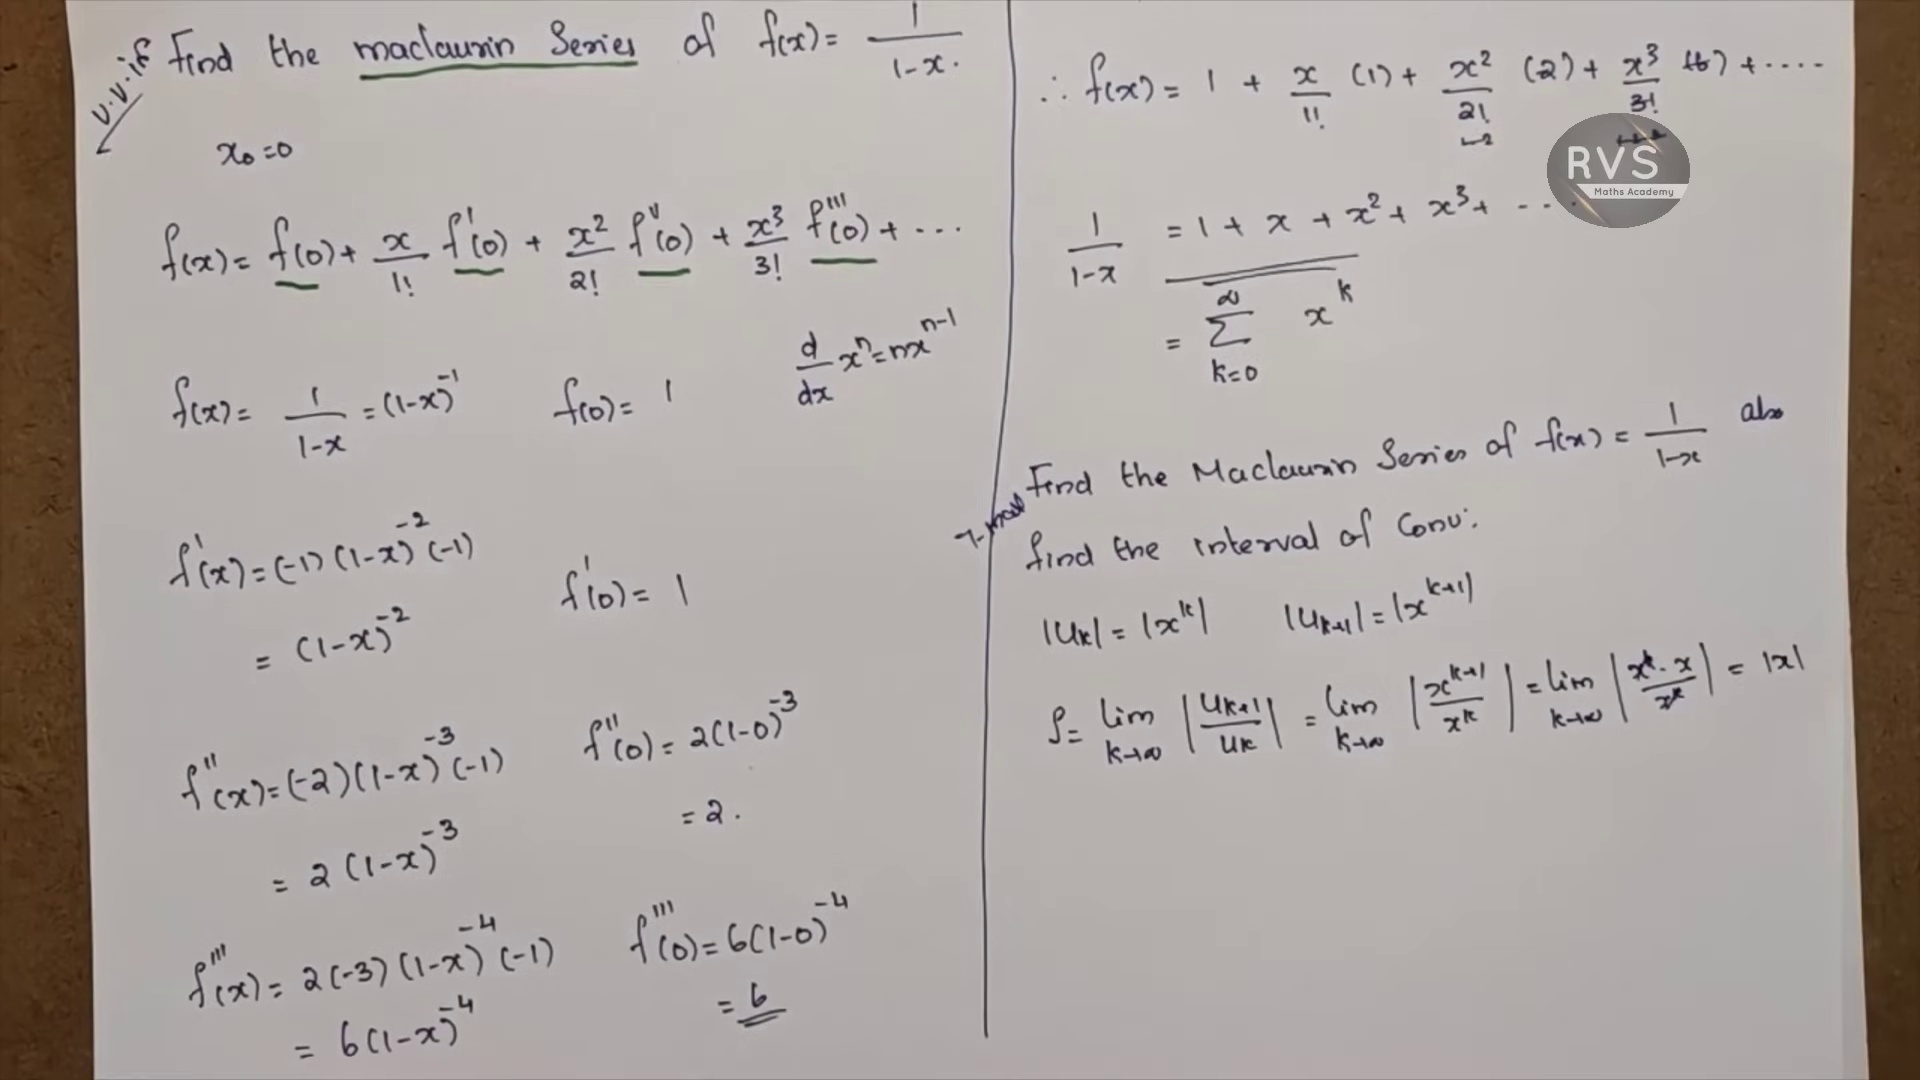 v.v.if Find the maclaurin Series of f(x) = 1/(1-x).
x₀ = 0
f(x) = f(0) + x/1! f'(0) + x²/2! f''(0) + x³/3! f'''(0) + ...
d/dx xⁿ = nxⁿ⁻¹
f(x) = 1/(1-x) = (1-x)⁻¹ f(0) = 1
f'(x) = (-1)(1-x)⁻²(-1)
= (1-x)⁻² f'(0) = 1
f''(x) = (-2)(1-x)⁻³(-1) f''(0) = 2(1-0)⁻³
= 2(1-x)⁻³ = 2.
f'''(x) = 2(-3)(1-x)⁻⁴(-1) f'''(0) = 6(1-0)⁻⁴
= 6(1-x)⁻⁴ = 6
∴ f(x) = 1 + x/1! (1) + x²/2! (2) + x³/3! (6) + ....
RVS
Maths Academy
1/(1-x) = 1 + x + x² + x³ + ...
= ∞ Σ k=0 xᵏ
Find the Maclaurin Series of f(x) = 1/(1-x) also
find the interval of Conv:
|uₖ| = |xᵏ| |uₖ₊₁| = |xᵏ⁺¹|
ρ = lim k→∞ |uₖ₊₁/uₖ| = lim k→∞ |xᵏ⁺¹/xᵏ| = lim k→∞ |xᵏ·x/xᵏ| = |x|